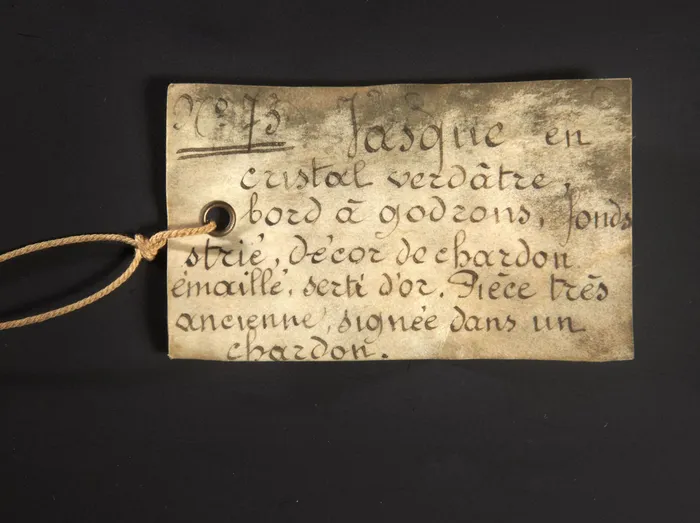 No. 73. Vasque en
cristal verdâtre,
bord à godrons, fonds
strié, décor de chardon
émaillé, serti d'or. Pièce très
ancienne, signée dans un
chardon.